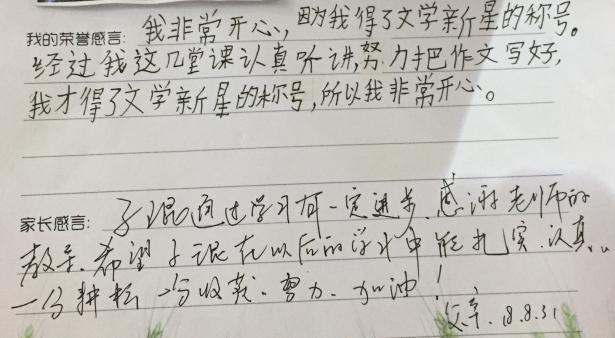 我的荣誉感言：我非常开心，因为我得了文学新星的称号。
经过我这几堂课认真听讲，努力把作文写好，
我才得了文学新星的称号，所以我非常开心。
家长感言：子琨通过学习有一定进步，感谢老师的
教导。希望子琨在以后的学习中能扎实、认真。
一分耕耘一分收获。努力、加油！
18.8.31